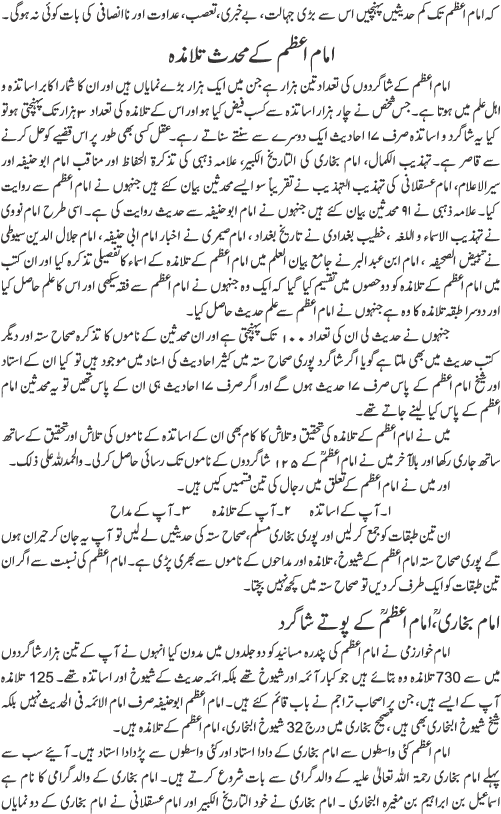 کہ امام اعظم تک کم حدیثیں پہنچیں اس سے بڑی جہالت، بے خبری، تعصب، عداوت اور ناانصافی کی بات کوئی نہ ہوگی۔
امام اعظم کے محدث تلامذہ
امام اعظم کے شاگردوں کی تعداد تین ہزار ہے جن میں ایک ہزار بڑے نمایاں ہیں اور ان کا شمار اکابر اساتذہ و
اہل علم میں ہوتا ہے۔ جس شخص نے چار ہزار اساتذہ سے کسب فیض کیا ہو اور اس کے تلامذہ کی تعداد ۳ ہزار تک پہنچتی ہو تو
کیا یہ شاگرد و اساتذہ صرف ۱۷ احادیث ایک دوسرے سے سنتے سناتے رہے۔ عقل کسی بھی طور پر اس قضیے کو حل کرنے
سے قاصر ہے۔ تہذیب الکمال، امام بخاری کی التاریخ الکبیر، علامہ ذہبی کی تذکرۃ الحفاظ اور مناقب امام ابو حنیفہ اور
سیر الاعلام، امام عسقلانی کی تہذیب التہذیب نے تقریباً سو ایسے محدثین بیان کئے ہیں جنہوں نے امام اعظم سے روایت
کیا۔ علامہ ذہبی نے ۹۱ محدثین بیان کئے ہیں جنہوں نے امام ابوحنیفہ سے حدیث روایت کی ہے۔ اسی طرح امام نووی
نے تہذیب الاسماء و اللغہ، خطیب بغدادی نے تاریخ بغداد، امام صیمری نے اخبار امام ابی حنیفہ، امام جلال الدین سیوطی
نے تبییض الصحیفہ، امام ابن عبدالبر نے جامع بیان العلم میں امام اعظم کے تلامذہ کے اسماء کا تفصیلی تذکرہ کیا اور ان کتب
میں امام اعظم کے تلامذہ کو دو حصوں میں تقسیم کیا گیا کہ ایک وہ جنہوں نے امام اعظم سے فقہ سیکھی اور اس کا علم حاصل کیا
اور دوسرا طبقہ تلامذہ کا وہ ہے جنہوں نے امام اعظم سے علم حدیث حاصل کیا۔
جنہوں نے حدیث لی ان کی تعداد ۱۰۰ تک پہنچتی ہے اور ان محدثین کے ناموں کا تذکرہ صحاح ستہ میں اور دیگر
کتب حدیث میں بھی ملتا ہے گویا اگر شاگرد پوری صحاح ستہ میں کثیر احادیث کی اسناد میں موجود ہیں تو کیا ان کے استاد
اور شیخ امام اعظم کے پاس صرف ۱۷ حدیث ہوں گے اور اگر صرف ۱۷ احادیث ہی ان کے پاس تھیں تو یہ محدثین امام
اعظم کے پاس کیا لینے جاتے تھے۔
میں نے امام اعظم کے تلامذہ کی تحقیق و تلاش کا کام بھی ان کے اساتذہ کے ناموں کی تلاش اور تحقیق کے ساتھ
ساتھ جاری رکھا اور بالآخر میں نے امام اعظمؒ کے ۱۲۵ شاگردوں کے ناموں تک رسائی حاصل کرلی۔ والحمدللہ علی ذلک۔
اور میں نے امام اعظم کے تعلق میں رجال کی تین قسمیں کیں ہیں۔
۱۔ آپ کے اساتذہ ۲۔ آپ کے تلامذہ ۳۔ آپ کے مداح
ان تین طبقات کو جمع کر لیں اور پوری بخاری مسلم، صحاح ستہ کی حدیثیں لے لیں تو آپ یہ جان کر حیران ہوں
گے پوری صحاح ستہ امام اعظم کے شیوخ، تلامذہ اور مداحوں کے ناموں سے بھری پڑی ہے۔ امام اعظم کی نسبت سے اگر ان
تین طبقات کو ایک طرف کر دیں تو صحاح ستہ میں کچھ نہیں بچتا۔
امام بخاریؒ، امام اعظمؒ کے پوتے شاگرد
امام خوارزمی نے امام اعظم کی پندرہ مسانید کو دو جلدوں میں مدون کیا انہوں نے آپ کے تین ہزار شاگردوں
میں سے 730 تلامذہ وہ بتائے ہیں جو کبار آئمہ اور شیوخ تھے بلکہ ائمہ حدیث کے شیوخ اور اساتذہ تھے۔ 125 تلامذہ
آپ کے ایسے ہیں، جن پر اصحاب تراجم نے باب قائم کئے ہیں۔ امام اعظم ابوحنیفہ صرف امام الائمہ فی الحدیث نہیں بلکہ
شیخ شیوخ البخاری بھی ہیں، صحیح بخاری میں درج 32 شیوخ البخاری، امام اعظم کے تلامذہ ہیں۔
امام اعظم کئی واسطوں سے امام بخاری کے دادا استاد اور کئی واسطوں سے پڑدادا استاد ہیں۔ آیئے سب سے
پہلے امام بخاری رحمۃ اللہ تعالیٰ علیہ کے والد گرامی سے بات شروع کرتے ہیں۔ امام بخاری کے والد گرامی کا نام ہے
اسماعیل بن ابراہیم بن مغیرہ البخاری۔ امام بخاری نے خود التاریخ الکبیر اور امام عسقلانی نے امام بخاری کے دو نمایاں